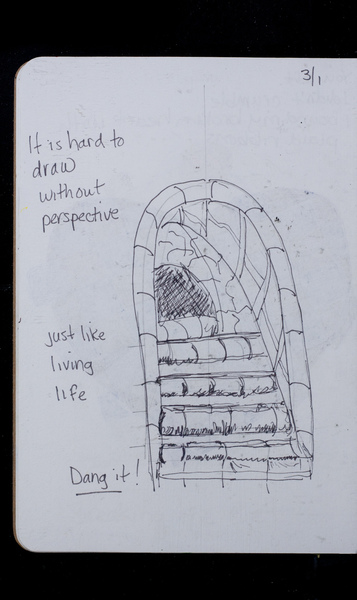 3/1
It is hard to
draw
without
perspective
just like
living
life
Dang it!